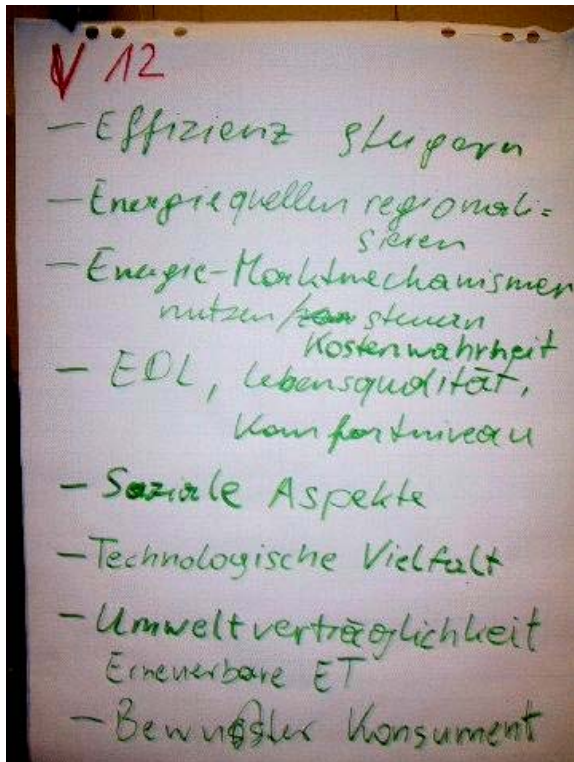 V 12
- Effizienz steigern
- Energiequellen regionali=
sieren
- Energie-Marktmechanismen
nutzen / steuern
Kostenwahrheit
- EDL, Lebensqualität,
Komfortniveau
- Soziale Aspekte
- Technologische Vielfalt
- Umweltverträglichkeit
Erneuerbare ET
- Bewußter Konsument